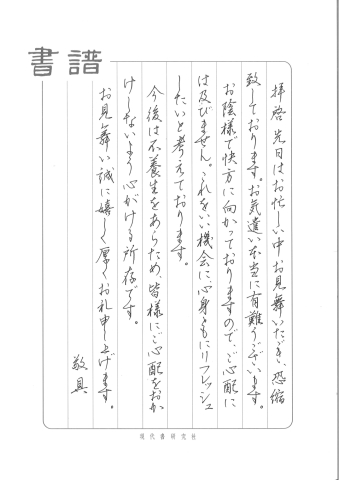 書譜
拝啓 先日はお忙しい中お見舞いただき、恐縮
致しております。お気遣い本当に有難うございます。
お陰様で快方に向かっておりますので、ご心配に
は及びません。これをいい機会に心身ともにリフレッシュ
したいと考えております。
今後は不養生をあらため、皆様にご心配をおか
けしないよう心がける所存です。
お見舞い誠に嬉しく厚くお礼申し上げます。
敬具
現代書研究社